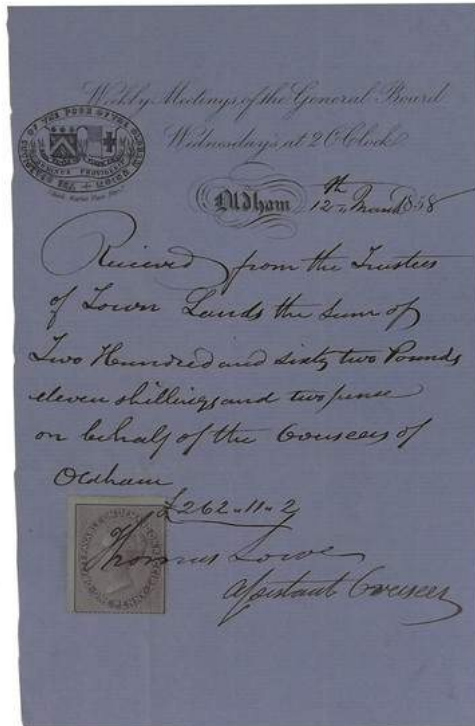 Weekly Meetings of the General Board
Wednesday's at 2 O'Clock
Oldham 12th March 1858
Received from the Trustees
of Town Lands the sum of
Two Hundred and sixty two Pounds
eleven shillings and two pense
on behalf of the Overseers of
Oldham
£262-11-2
Thomas Lowe
Assistant Overseer